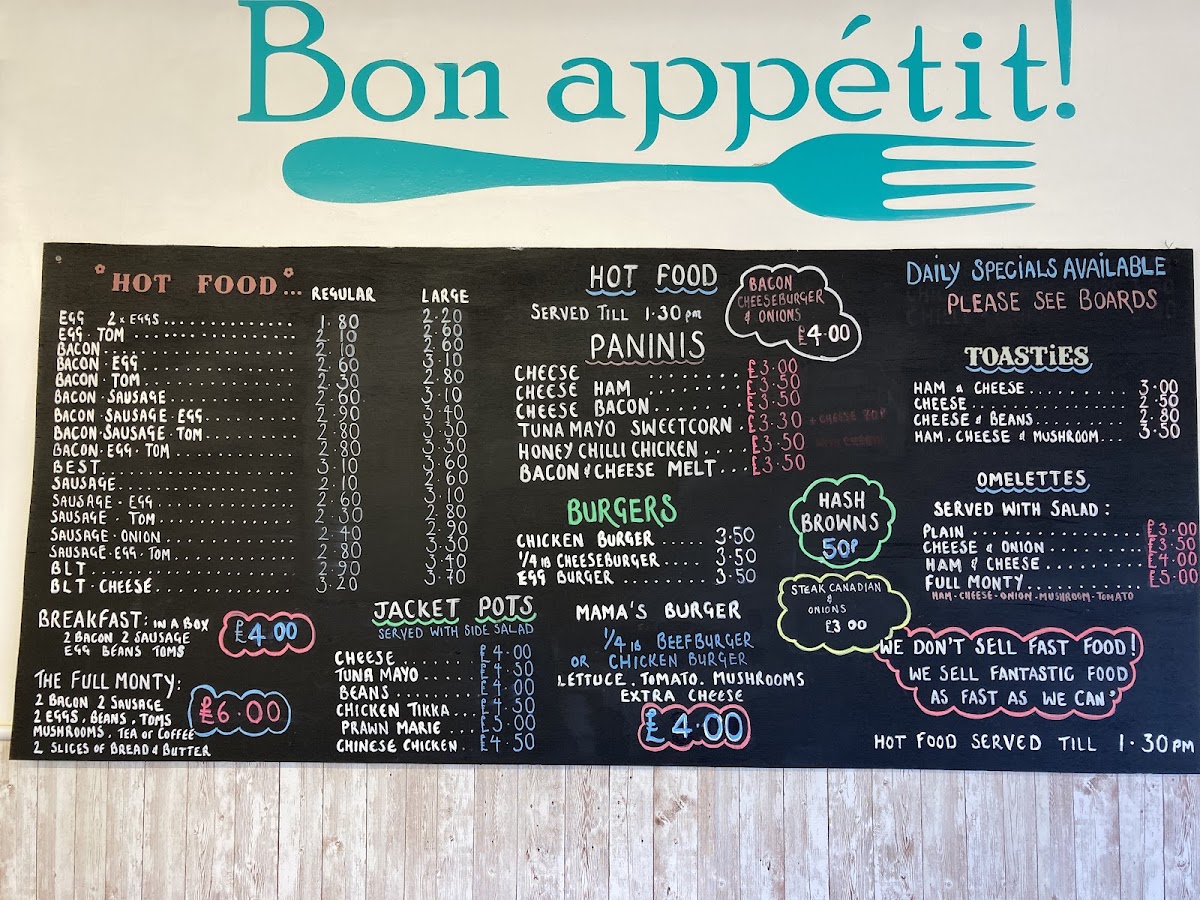 Bon appétit!
HOT FOOD...
REGULAR LARGE
EGG 2 x EGGS.............. 1.80 2.20
EGG . TOM.............. 2.10 2.60
BACON.............. 2.10 2.60
BACON . EGG.............. 2.60 3.10
BACON TOM.............. 2.30 2.80
BACON . SAUSAGE.............. 2.60 3.10
BACON . SAUSAGE . EGG.............. 2.90 3.40
BACON . SAUSAGE . TOM.............. 2.80 3.30
BACON . EGG . TOM.............. 2.80 3.30
BEST.............. 3.10 3.60
SAUSAGE.............. 2.10 2.60
SAUSAGE . EGG.............. 2.60 3.10
SAUSAGE . TOM.............. 2.30 2.80
SAUSAGE . ONION.............. 2.40 2.90
SAUSAGE . EGG . TOM.............. 2.80 3.30
BLT.............. 2.90 3.40
BLT . CHEESE.............. 3.20 3.70
BREAKFAST: IN A BOX
2 BACON 2 SAUSAGE
EGG BEANS TOMS
£4.00
THE FULL MONTY:
2 BACON 2 SAUSAGE
2 EGGS . BEANS . TOMS
MUSHROOMS . TEA or COFFEE
2 SLICES OF BREAD & BUTTER
£6.00
JACKET POTS
SERVED WITH SIDE SALAD
CHEESE........ £4.00
TUNA MAYO..... £4.50
BEANS........ £4.00
CHICKEN TIKKA... £4.50
PRAWN MARIE... £5.00
CHINESE CHICKEN. £4.50
HOT FOOD
SERVED TILL 1.30 PM
BACON
CHEESEBURGER
& ONIONS
£4.00
PANINIS
CHEESE.......... £3.00
CHEESE HAM....... £3.50
CHEESE BACON....... £3.50
TUNA MAYO SWEETCORN. £3.30 + CHEESE 70P
HONEY CHILLI CHICKEN.... £3.50
BACON & CHEESE MELT... £3.50
BURGERS
CHICKEN BURGER..... 3.50
1/4 lb CHEESEBURGER.... 3.50
EGG BURGER........ 3.50
HASH
BROWNS
50P
STEAK CANADIAN
&
ONIONS
£3.00
MAMA'S BURGER
1/4 lb BEEFBURGER
OR CHICKEN BURGER
LETTUCE . TOMATO . MUSHROOMS
EXTRA CHEESE
£4.00
DAILY SPECIALS AVAILABLE
PLEASE SEE BOARDS
TOASTiES
HAM & CHEESE........ 3.00
CHEESE........... 2.50
CHEESE & BEANS........ 2.80
HAM . CHEESE & MUSHROOM... 3.50
OMELETTES
SERVED WITH SALAD :
PLAIN.............. £3.00
CHEESE & ONION......... £3.50
HAM & CHEESE.......... £4.00
FULL MONTY........... £5.00
HAM - CHEESE - ONION - MUSHROOM - TOMATO
WE DON'T SELL FAST FOOD!
WE SELL FANTASTIC FOOD
AS FAST AS WE CAN"
HOT FOOD SERVED TILL 1.30PM